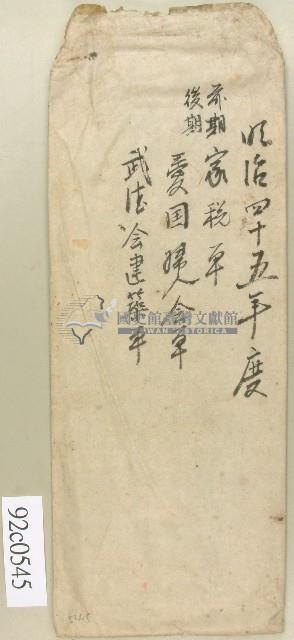 明治四十五年度
前期
後期
家税單
愛国婦人会單
武徳会建築單
國史館臺灣文獻館
TAIWAN HISTORICA
92c0545